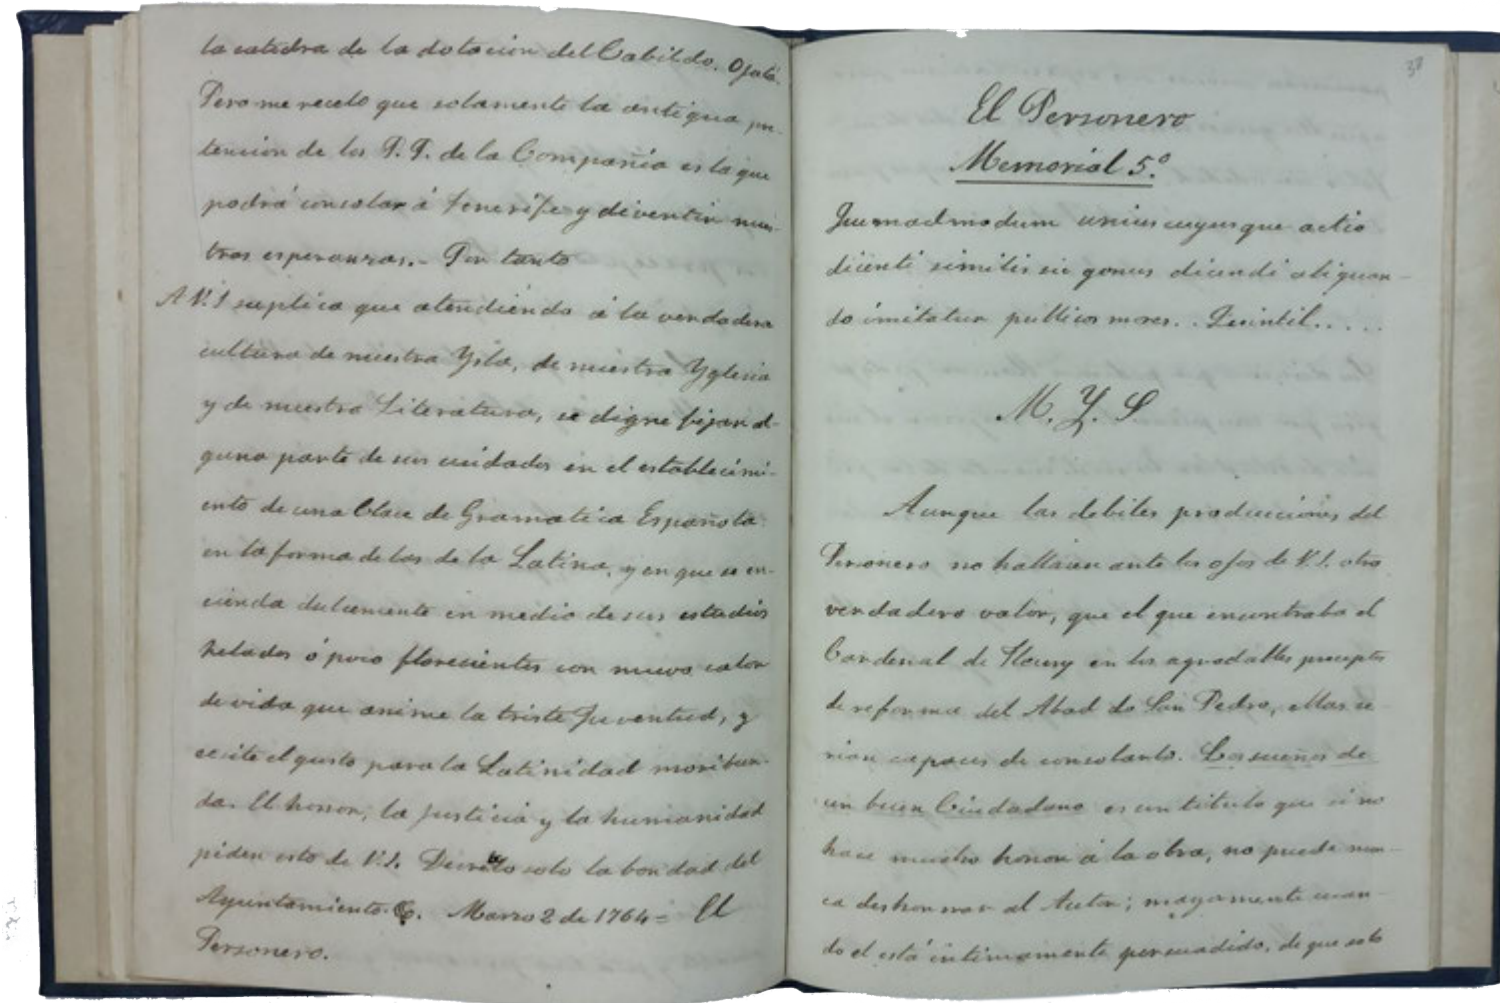 la catedra de la dotacion del Cabildo. Ojalá.
Pero me recelo que solamente la antigua pre-
tencion de los P.P. de la Compañia es la que
podrá consolar á Tenerife y divertir nues-
tras esperanzas.- Por tanto
A V.S suplica que atendiendo á la verdadera
cultura de nuestra Ysla, de nuestra Yglesia
y de nuestra Literatura, se digne fijar al-
guna parte de sus cuidados en el establecimi-
ento de una Clase de Gramatica Española
en la forma de las de la Latina, y en que se en-
cienda dulcemente en medio de sus estudios
helados ó poco florecientes con nuevo calor
de vida que anime la triste Juventud, y
ecsite el gusto para la Latinidad moribun-
da. El honor, la justicia y la humanidad
piden esto de V.S. Decretelo solo la bondad del
Ayuntamiento. Marzo 2 de 1764= El
Personero.
38
El Personero
Memorial 5.º
Quemadmodum unius cuyusque actio
dicenti similis sic genus dicendi aliquan-
do imitatur publicos mores. . Quintil. . . . .
M. Y. S.
Aunque las debiles producciónes del
Personero no hallasen ante los ojos de V.S. otro
verdadero valor, que el que encontraba el
Cardenal de Fleury en los agradables preceptos
de reforma del Abad de San Pedro, Mas se-
rian capaces de consolarlo. Los sueños de
un buen Ciudadano es un titulo que si no
hace mucho honor á la obra, no puede nun-
ca deshonrar al Autor; mayormente cuan-
do el está intimamente persuadido, de que solo